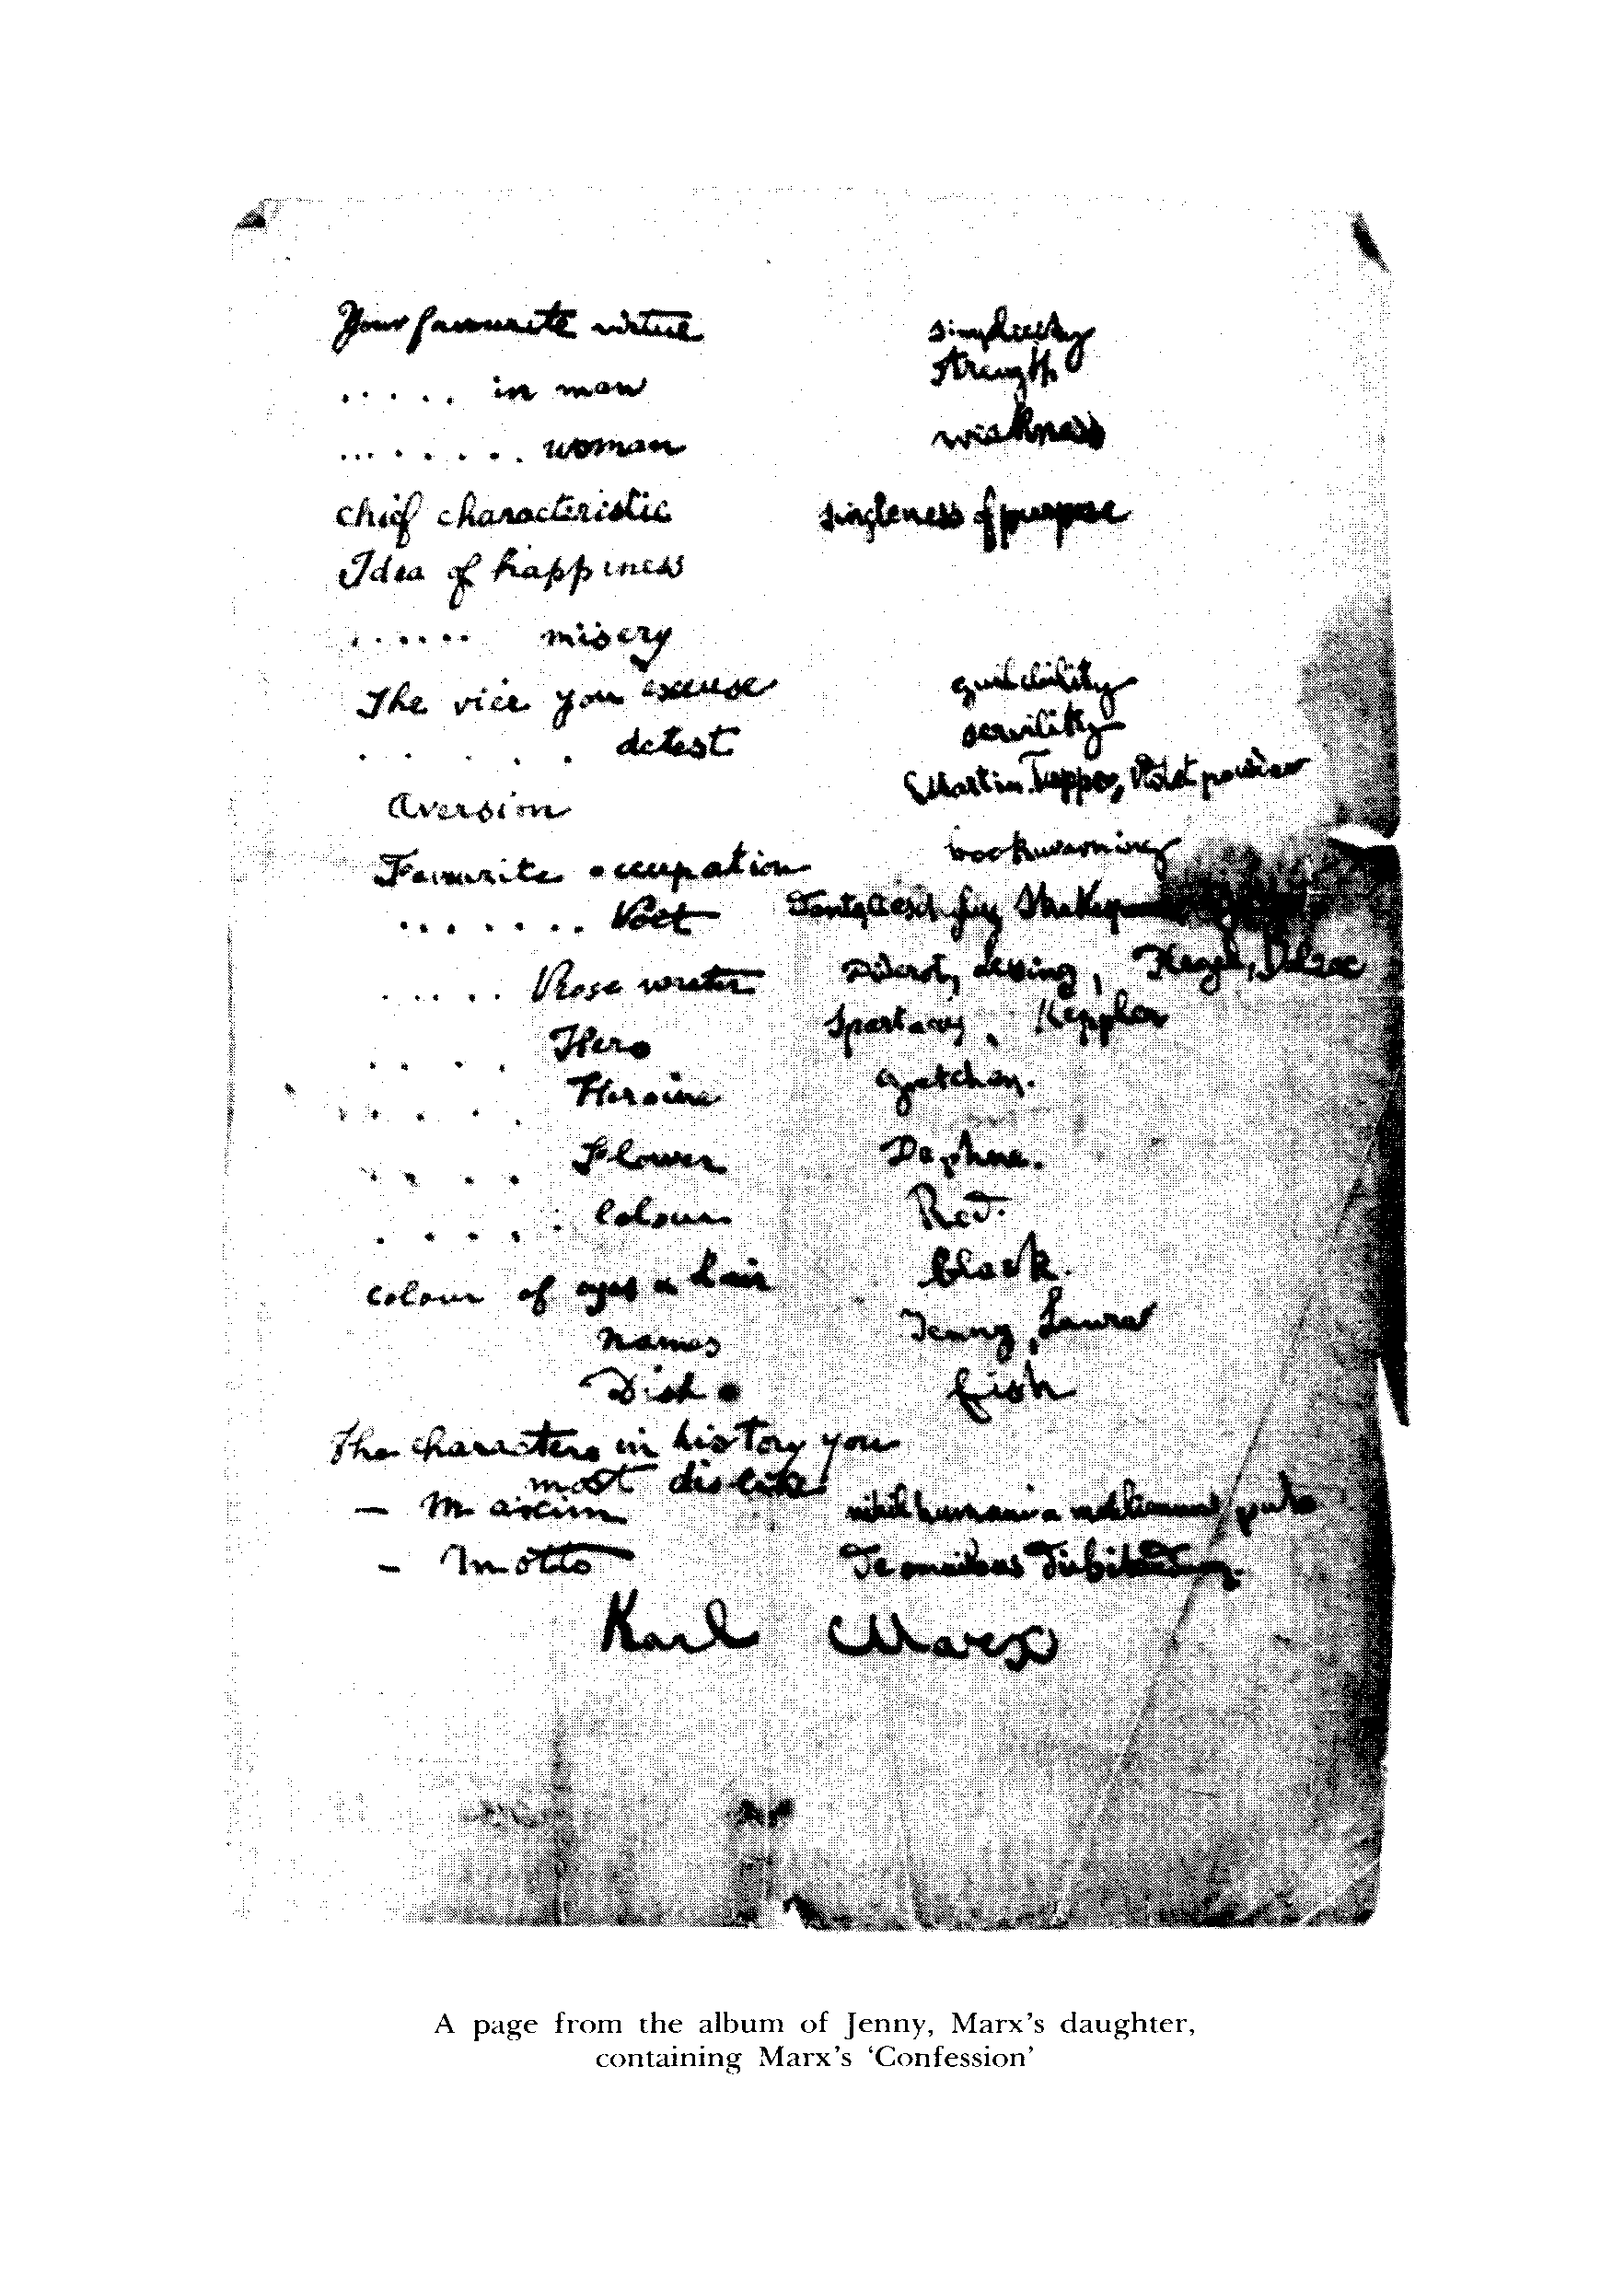 Your favourite virtue simplicity
..... in man strength
........ woman weakness
chief characteristic singleness of purpose
Idea of happiness
...... misery
The vice you excuse gullibility
..... detest servility
Aversion Martin Tupper, violet powder
Favourite occupation bookworming
....... Poet
..... Prose writer Diderot, Lessing, Hegel, Balzac
.... Hero Spartacus, Keppler
.... Heroine Gretchen.
.... Flower Daphne.
..... Colour Red.
colour of eyes & hair black.
names Jenny, Laura
Dish fish
The characters in history you
most dislike
– Maxim nihil humani a me alienum puto
– Motto De omnibus dubitandum.
Karl Marx
A page from the album of Jenny, Marx's daughter,
containing Marx's ‘Confession’